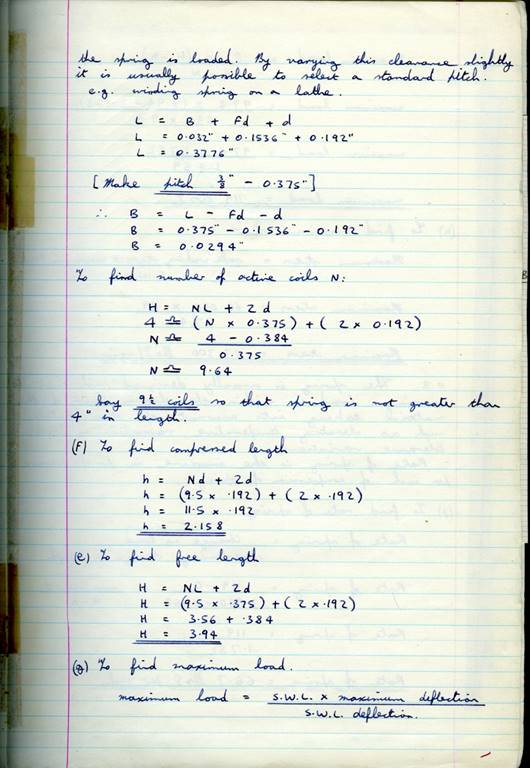 the spring is loaded. By varying this clearance slightly
it is usually possible to select a standard pitch.
e.g. winding spring on a lathe.
L = B + Fd + d
L = 0.032" + 0.1536" + 0.192"
L = 0.3776"
[Make pitch 3/8" - 0.375"]
∴ B = L - Fd - d
B = 0.375" - 0.1536" - 0.192"
B = 0.0294"
To find number of active coils N:
H = NL + 2d
4 ≏ (N × 0.375) + (2 × 0.192)
N ≏ 4 - 0.384
0.375
N ≏ 9.64
Say 9½ coils so that spring is not greater than
4" in length.
(F) To find compressed length
h = Nd + 2d
h = (9.5 × .192) + (2 × .192)
h = 11.5 × .192
h = 2.158
(e) To find free length
H = NL + 2d
H = (9.5 × .375) + (2 × .192)
H = 3.56 + .384
H = 3.94
(g) To find maximum load.
maximum load = S.W.L. × maximum deflection
S.W.L. deflection.